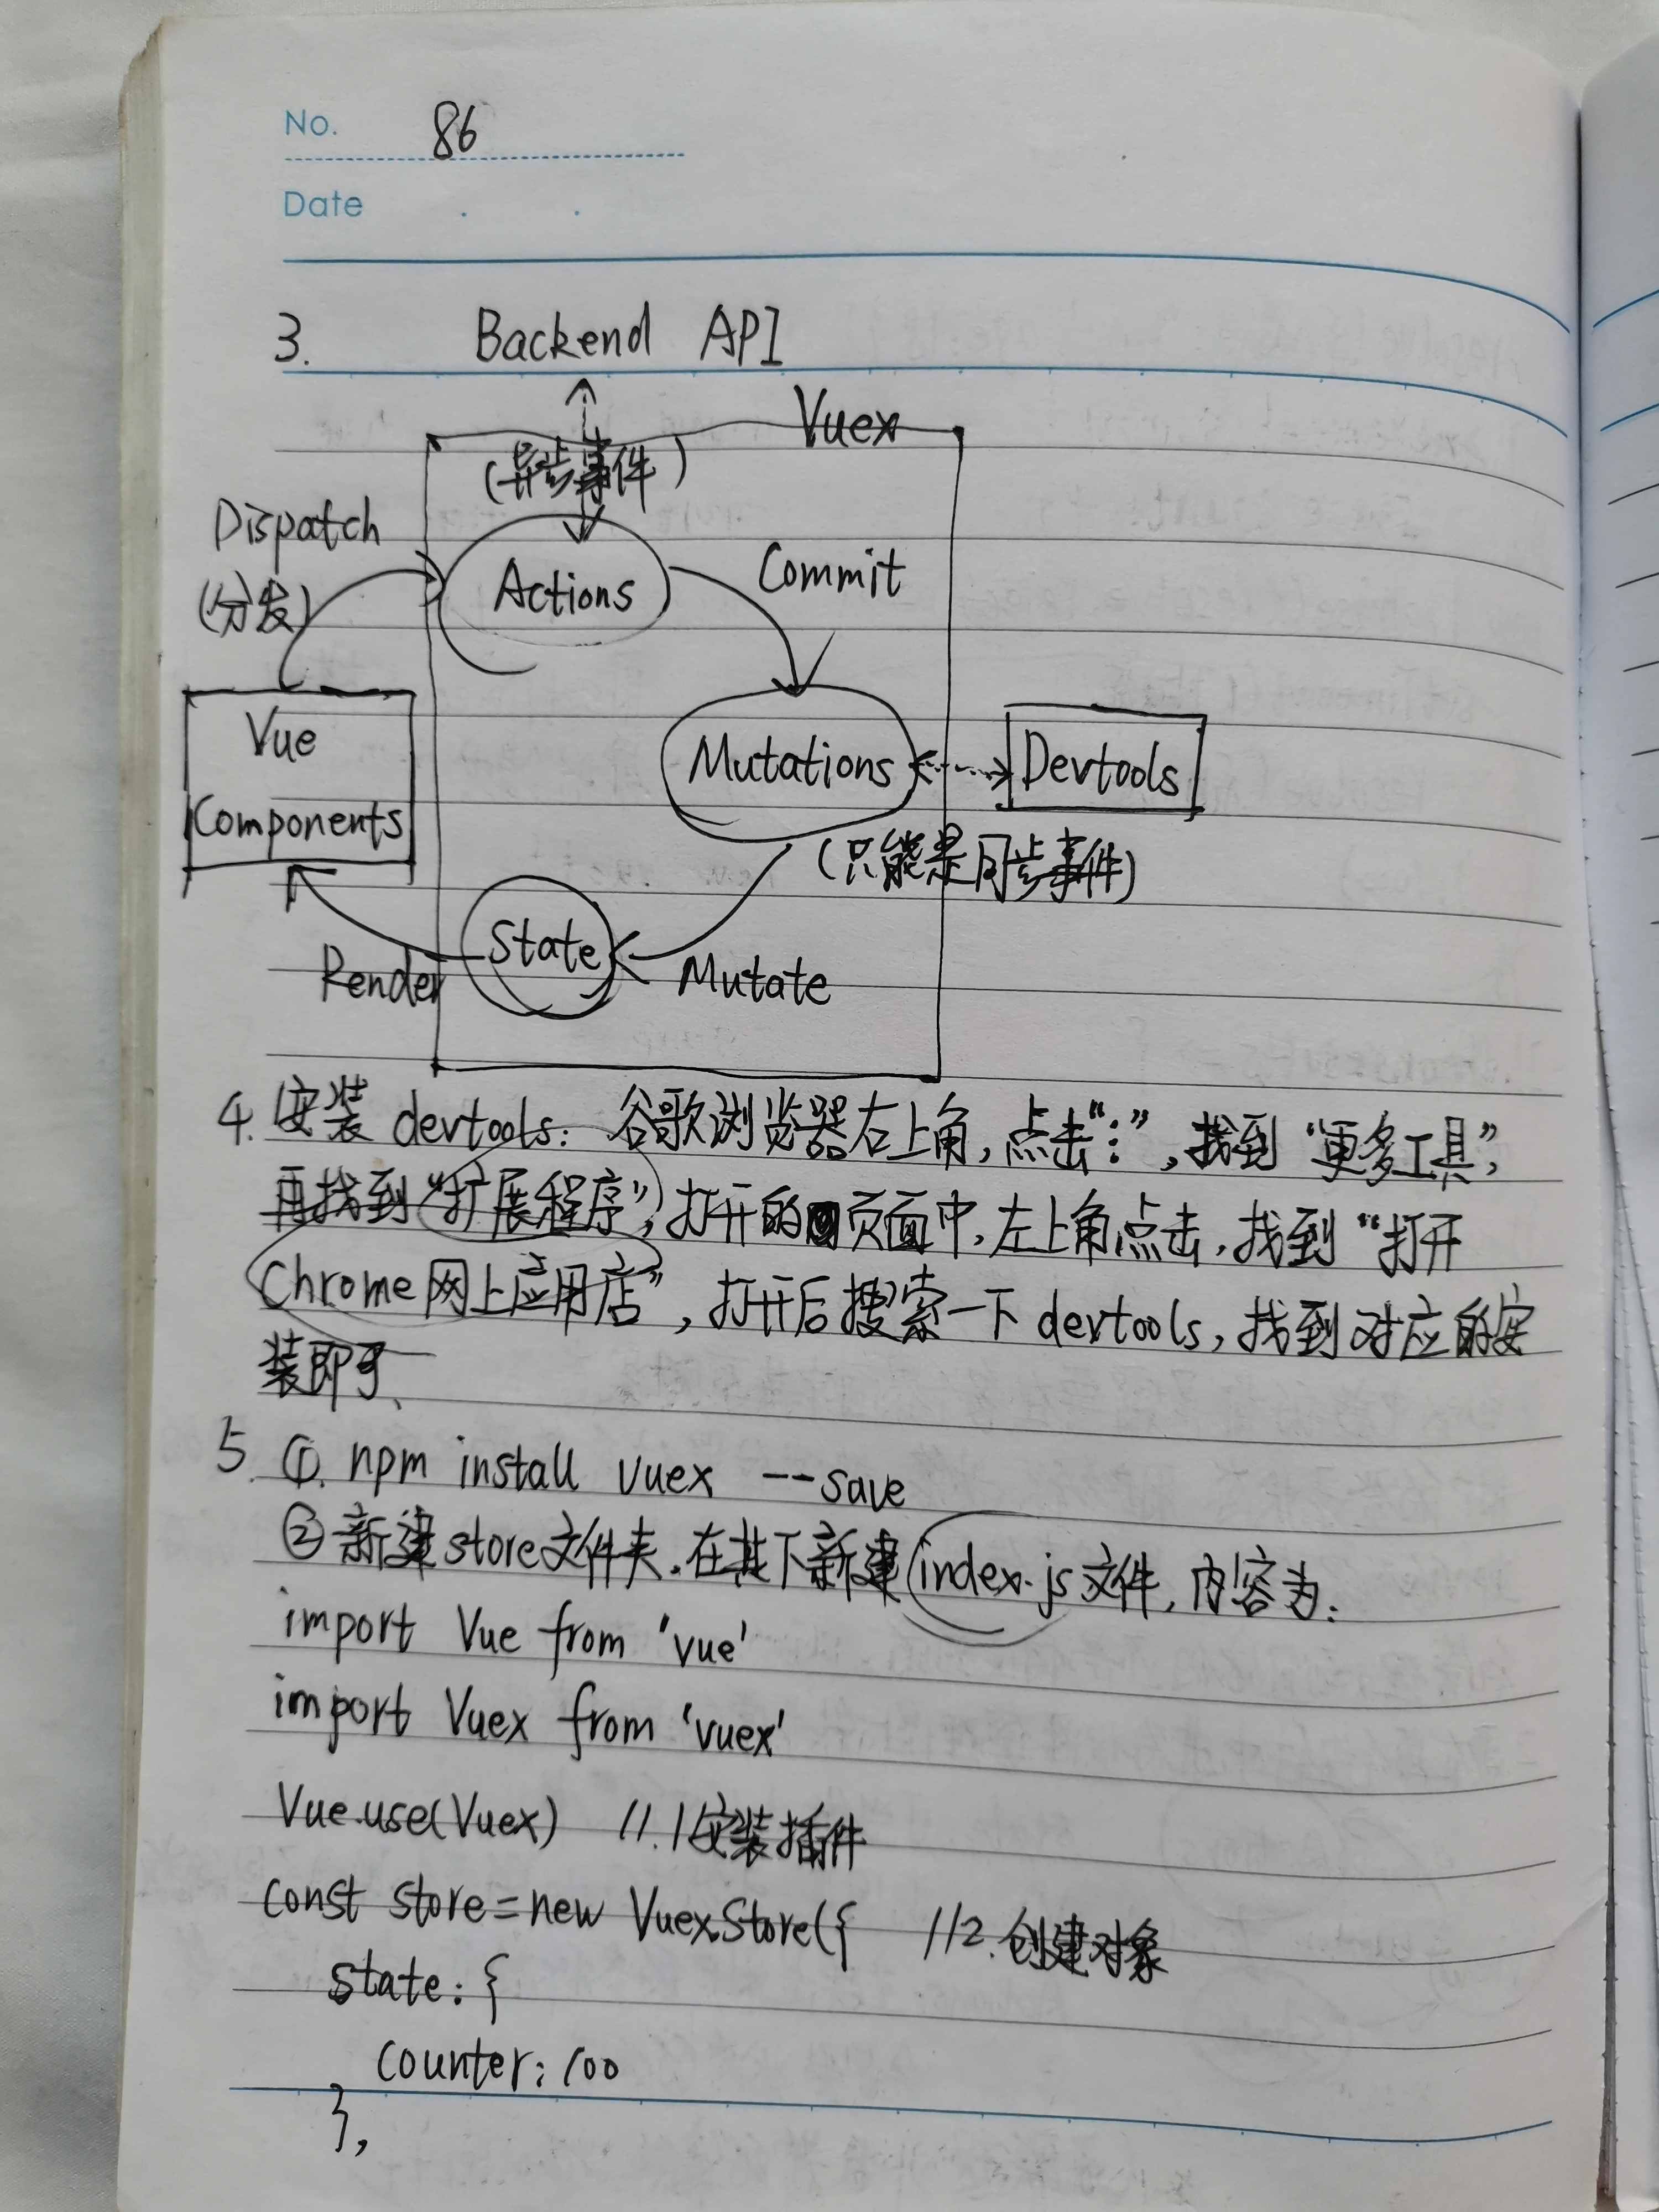 No. 86
Date
3. Backend API
Vuex
(异步事件)
Dispatch
(分发)
Actions
Commit
Vue
Components
Mutations
Devtools
(只能是同步事件)
State
Render
Mutate
4.安装 devtools: 谷歌浏览器右上角,点击“⋮”,找到“更多工具”,
再找到“扩展程序”,打开的页面中,左上角点击,找到“打开
Chrome网上应用店”,打开后搜索一下devtools,找到对应的安
装即可、
5. ①. npm install vuex --save
②新建store文件夹.在其下新建index.js文件,内容为:
import Vue from 'vue'
import Vuex from 'vuex'
Vue.use(Vuex) //.1安装插件
const store=new Vuex.Store({ //2.创建对象
state:{
counter:100
},